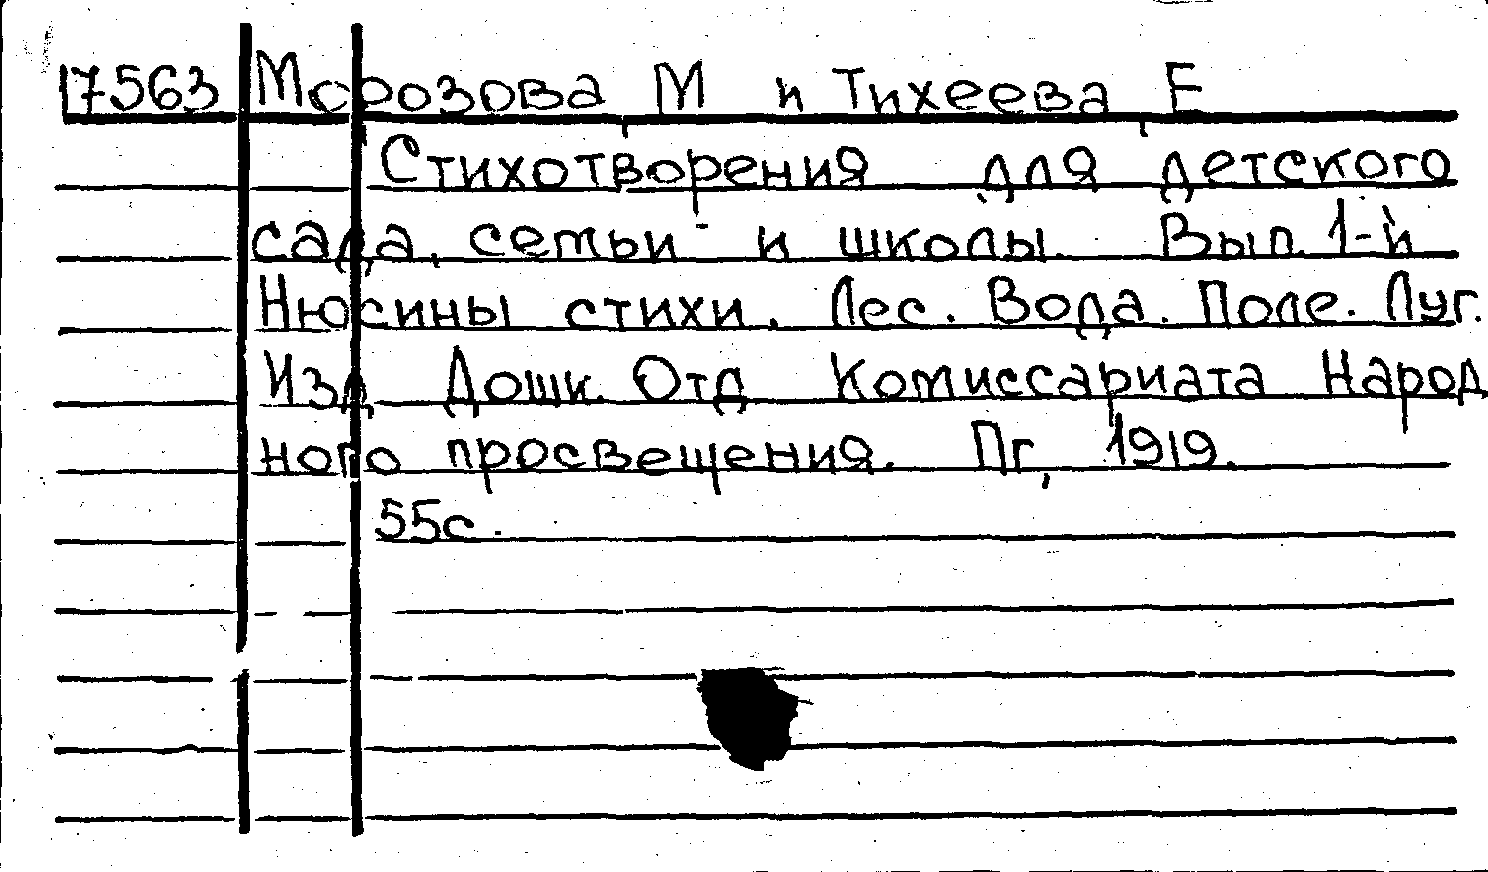 17563 Морозова М и Тихеева Е
Стихотворения для детского
сада, семьи и школы. Вып. 1-й
Нюсины стихи. Лес. Вода. Поле. Луг.
Изд Дошк. Отд Комиссариата Народ
ного просвещения. Пг, 1919.
55с.